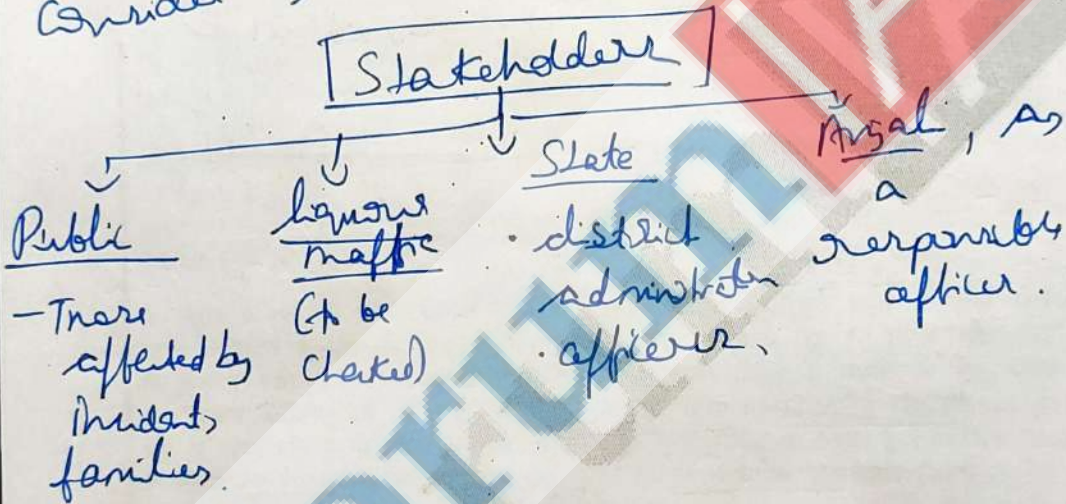 Consider
Stakeholders
Public
- Those
affected by
incidents
families.
liquour
maffie
(to be
checked)
State
. district
administration
. officers.
, As
a
responsible
officer.